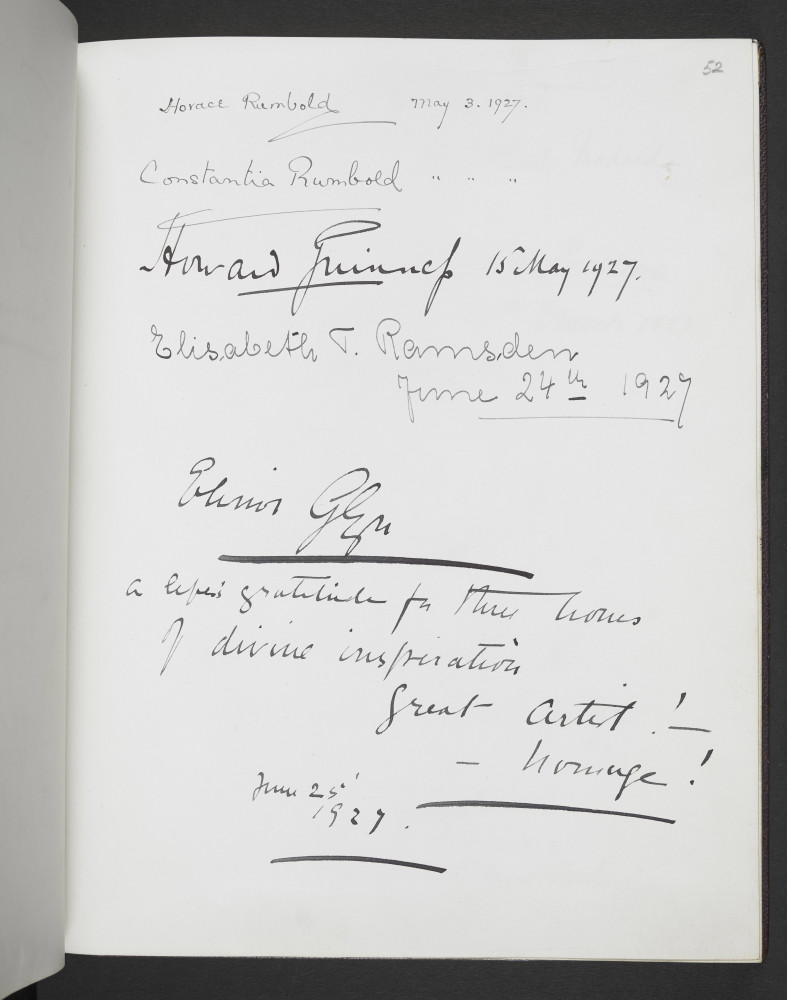 52
Horace Rumbold May 3. 1927.
Constantia Rumbold " " "
Howard Guinness 15 May 1927.
Elisabeth T. Ramsden
June 24th 1927
Elinor Glyn
a life's gratitude for three hours
of divine inspiration
Great Artist! —
— homage!
June 25'
1927.